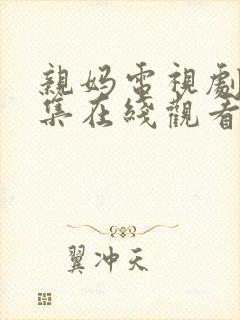 親妈電視劇
集在綫觀看
翼冲天